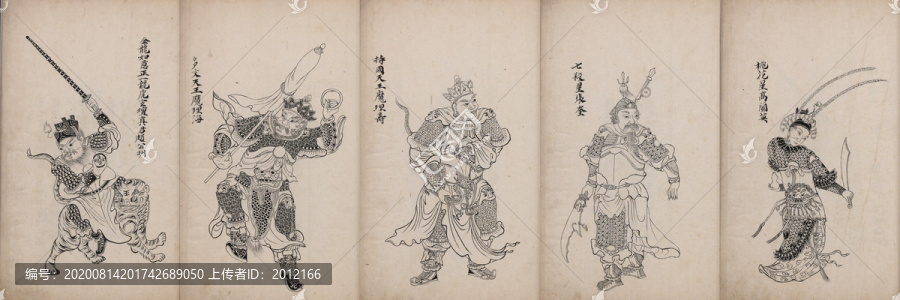 金龍如意正一龍虎玄壇真君趙公明
多文天王魔理海
持國天王魔理壽
七殺星張奎
桃花星高蘭英
编号：20200814201742689050 上传者ID：2012166